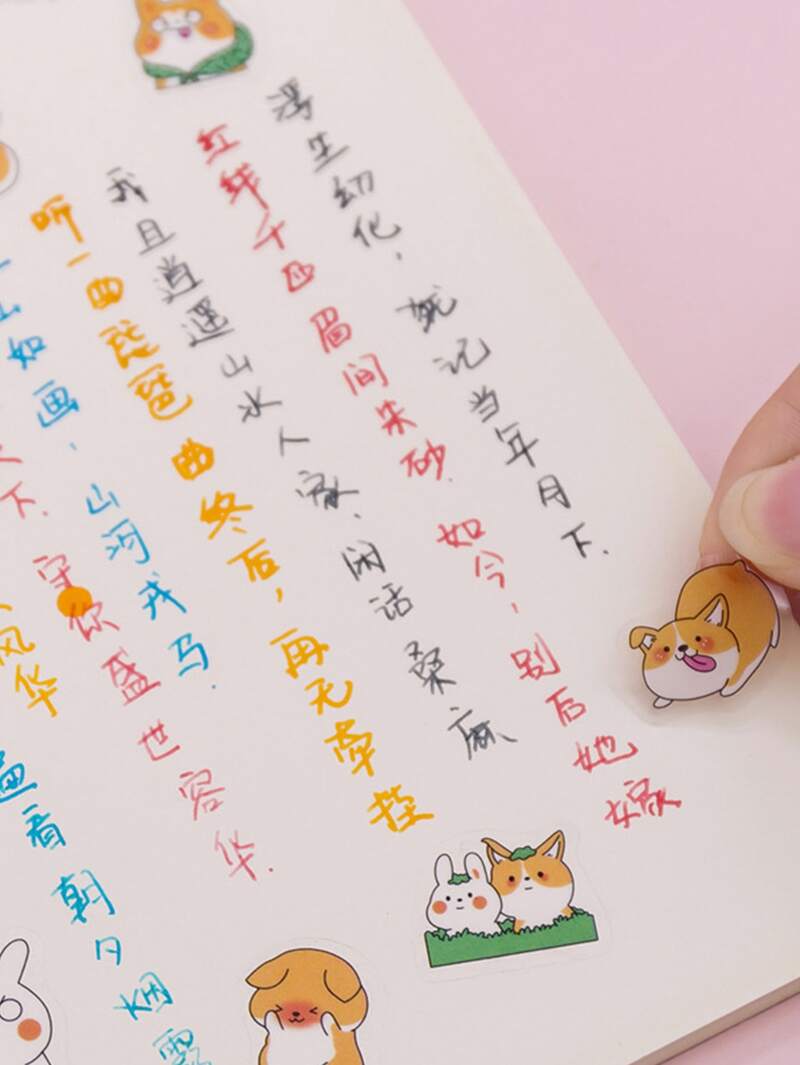 浮生幼化，犹记当年月下.
红千匹 眉间朱砂. 如今，别后她嫁
我且逍遥山水人家、闲话桑麻
听一曲琵琶 曲终后，再无牵挂
山如画，山河戎马.
下. 守你盛世容华.
风华
看朝夕烟